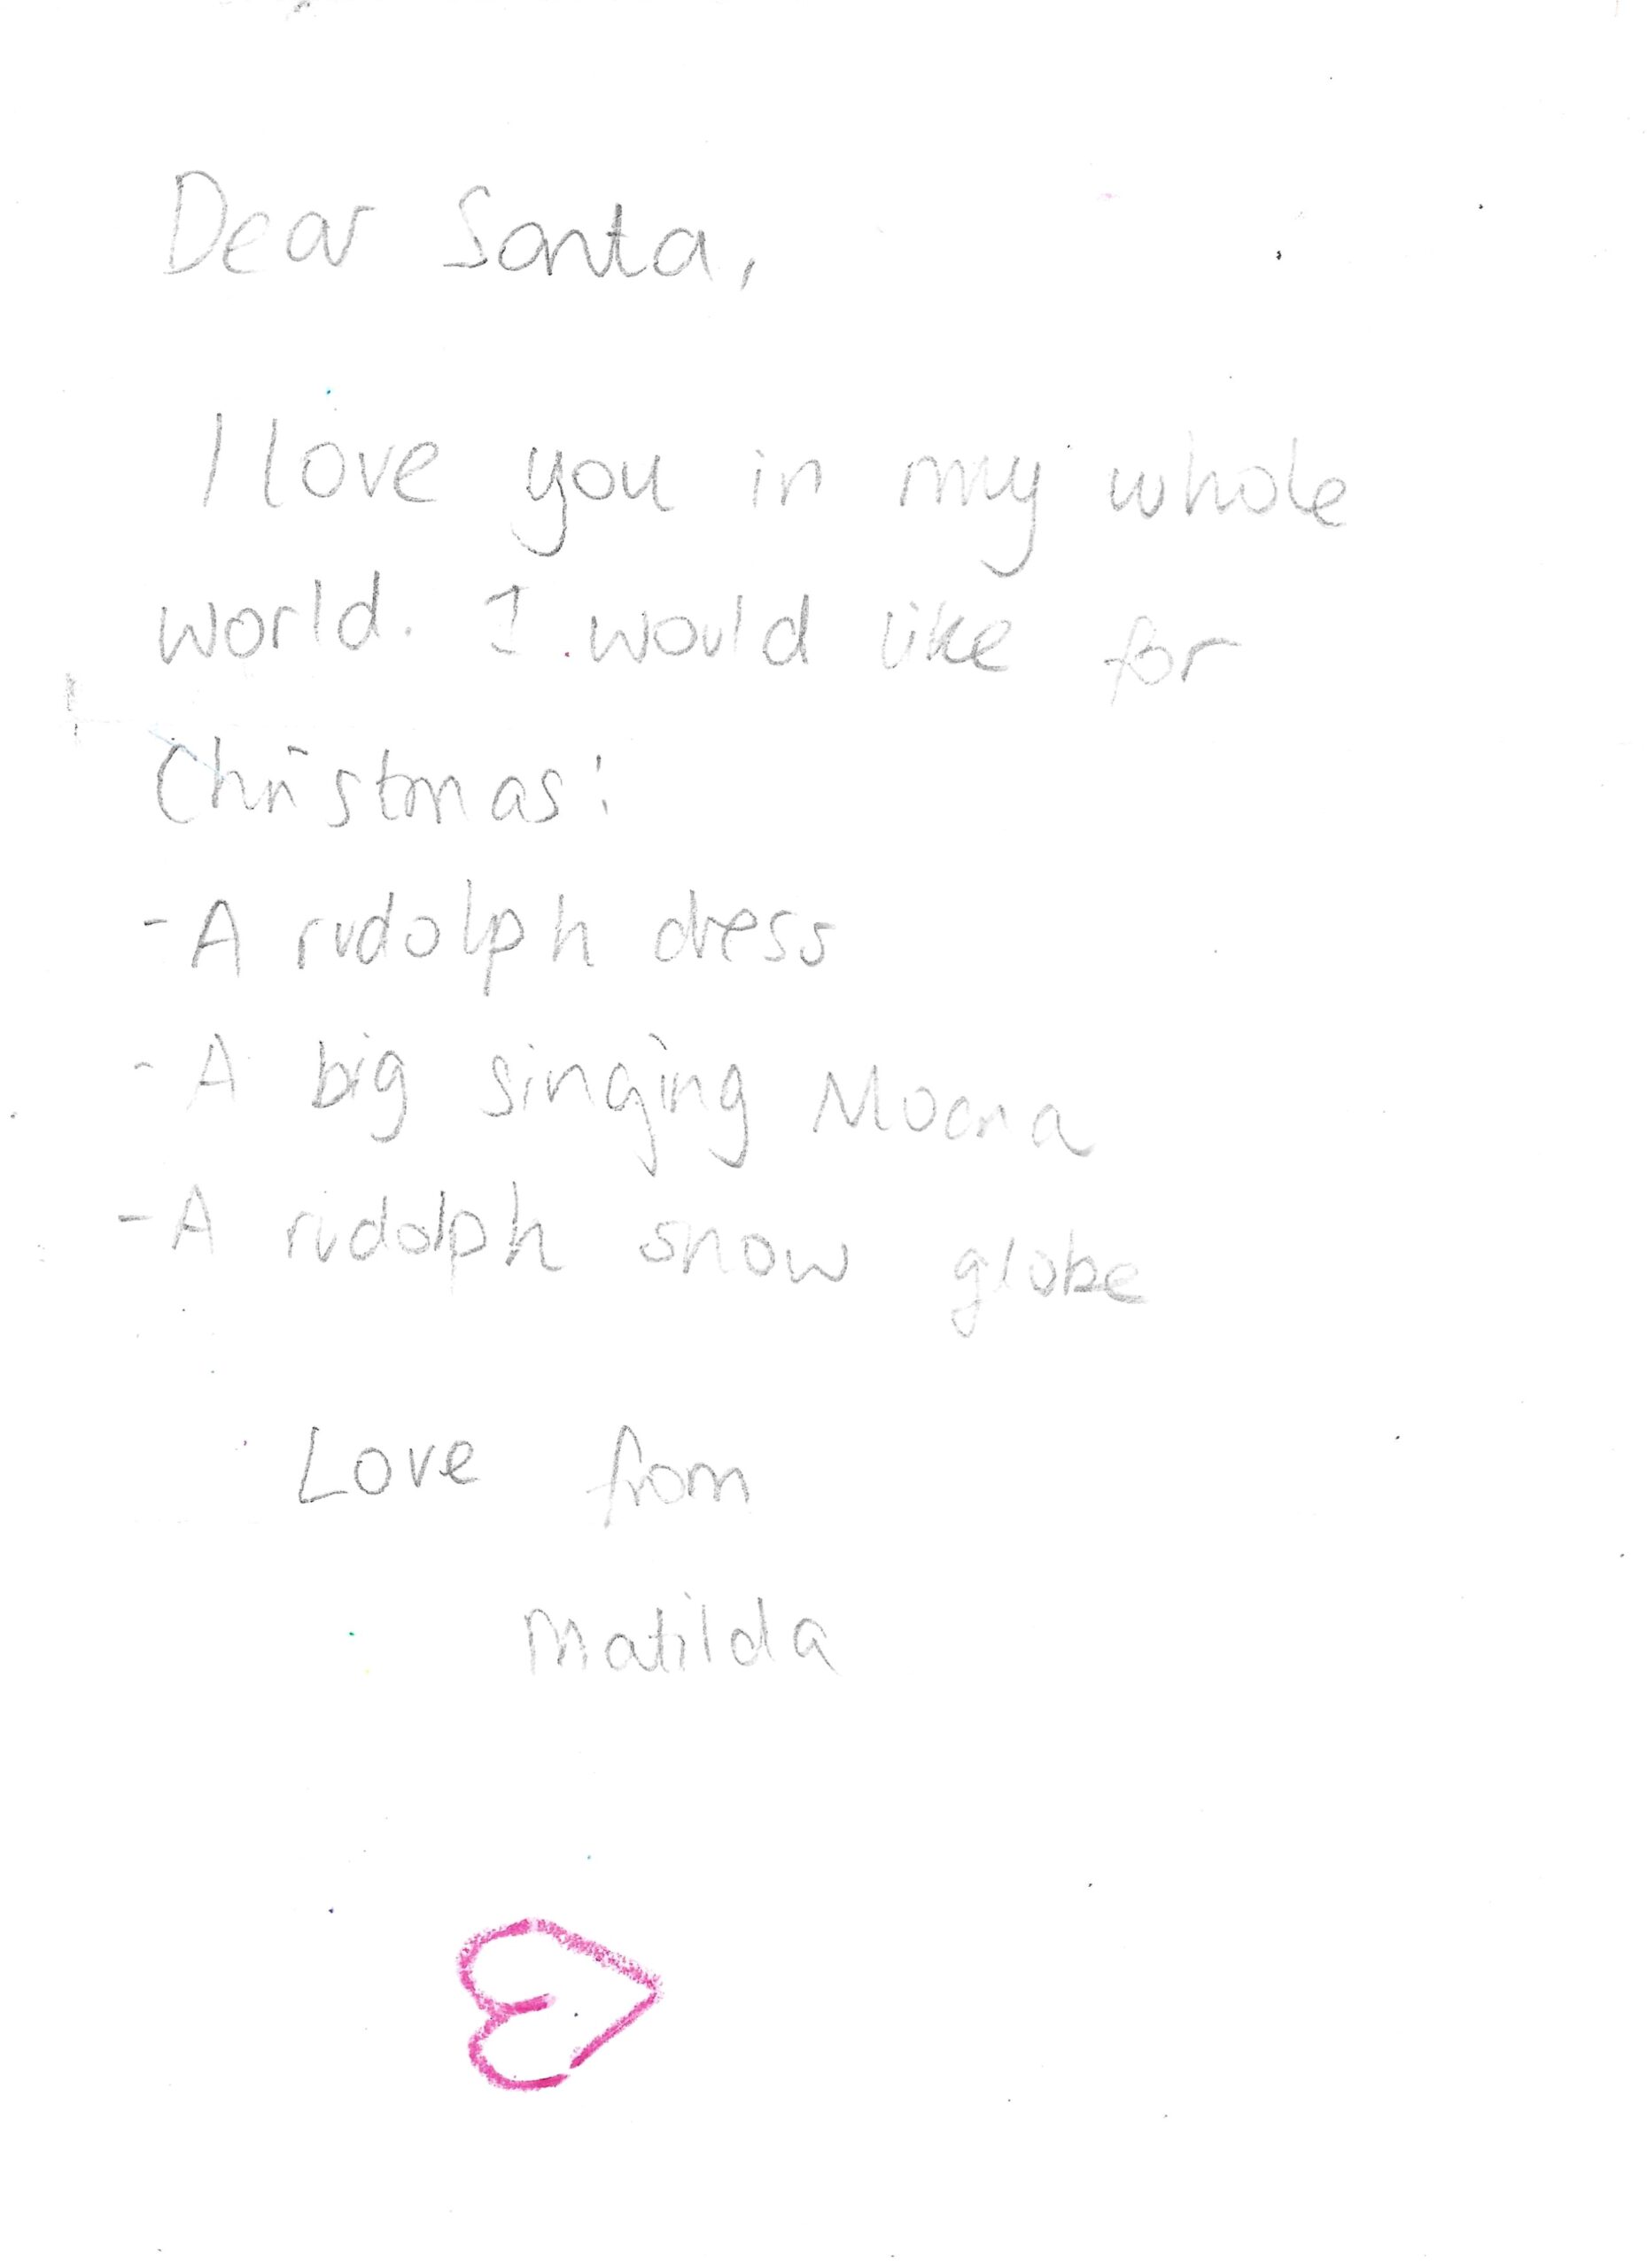 Dear Santa,
I love you in my whole
world. I would like for
Christmas:
- A rudolph dress
- A big singing Moana
- A rudolph snow globe
Love from
Matilda